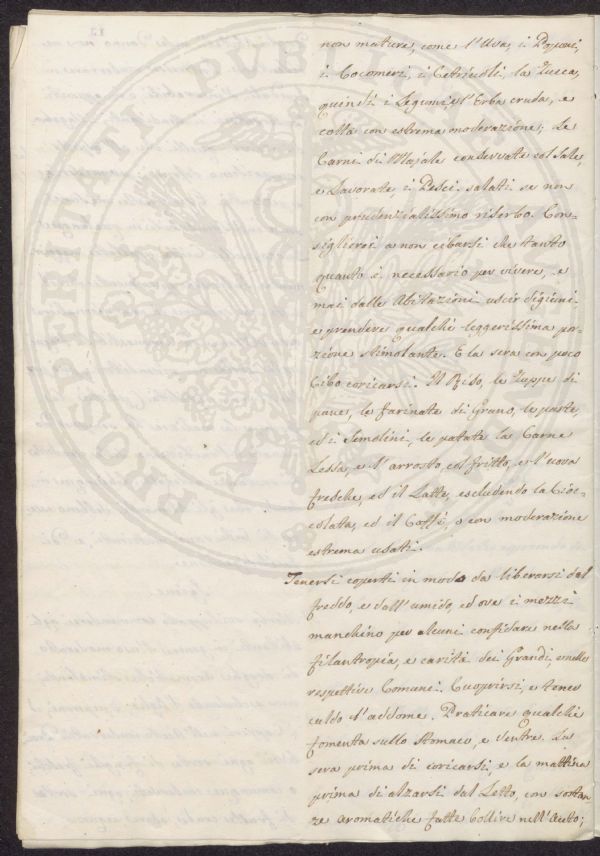 non mature, come l'Uva, i Poponi,
i Cocomeri, i Cetriuoli, la Zucca,
quindi i Legumi, e l'Erba cruda, e
cotta con estrema moderazione; Le
Carni di Majale conservate col Sale,
e Lavorate, i Pesci salati se non
con prudenzialissimo riserbo. Con-
siglierei a non cibarsi che tanto
quanto è necessario per vivere, e
mai dalle Abitazioni uscir digiuni
e prendere qualche leggerissima por-
zione stimolante. E la sera con poco
Cibo coricarsi. Il Riso, le Zuppe di
pane, le farinate di Grano, le paste,
ed i Semolini, le patate la Carne
Lessa, e l'arrosto, col fritto, e l'uova
fresche, ed il Latte, escludendo la Cioc-
colata, ed il Caffè, o con moderazione
estrema usati.
Tenersi coperti in modo da liberarsi dal
freddo, e dall'umido, ed ove i mezzi
manchino per alcuni confidare nella
filantropia, e carità dei Grandi, e nelle
respettive Comuni. Cuoprirsi, e tener
caldo l'addome. Praticare qualche
fomenta sullo Stomaco, e Ventre. La
sera prima di coricarsi, e la mattina
prima di alzarsi dal Letto, con sostan
ze aromatiche fatte bollire nell'Aceto;
PROSPERITATI PUBLICAE